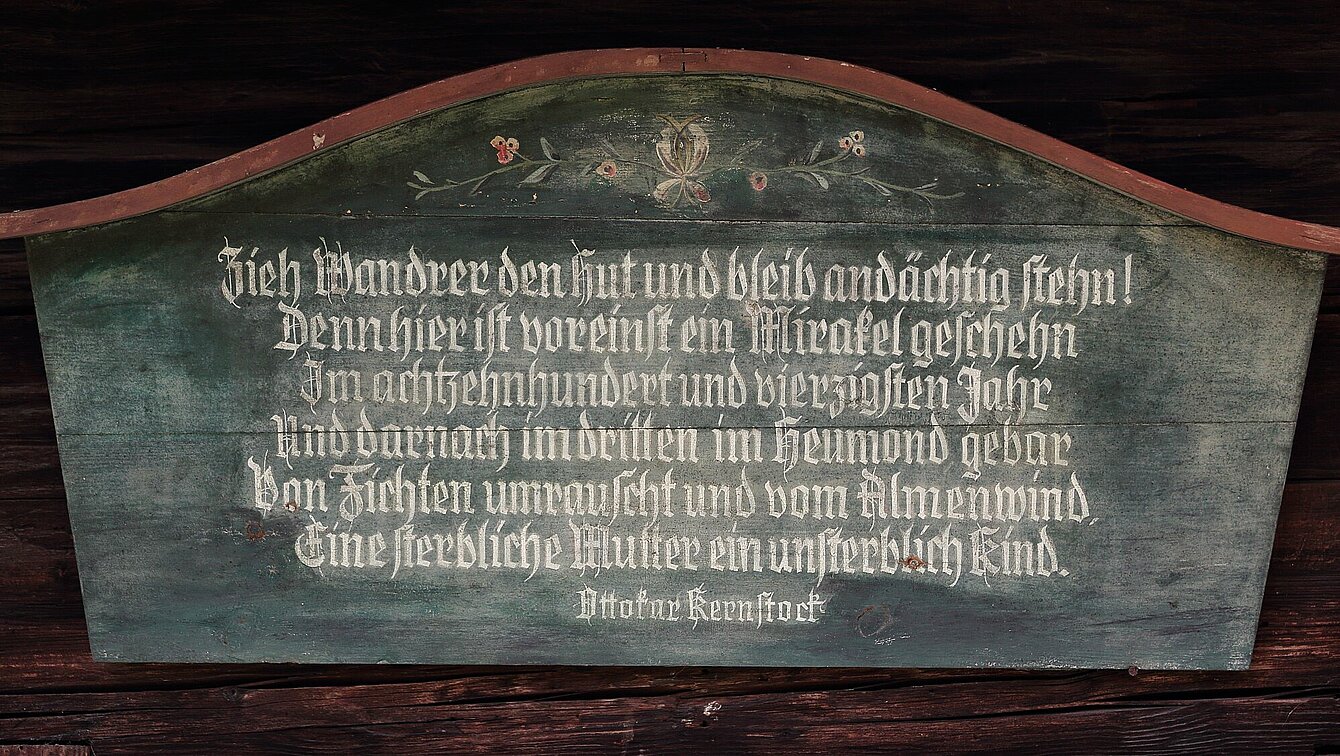 Zieh Wandrer den Hut und bleib andächtig stehn!
Denn hier ist voreinst ein Mirakel geschehn
Im achtzehnhundert und vierzigsten Jahr
Und darnach im dritten im Heumond gebar
Von Fichten umrauscht und vom Almenwind,
Eine sterbliche Mutter ein unsterblich Kind.
Ottokar Kernstock